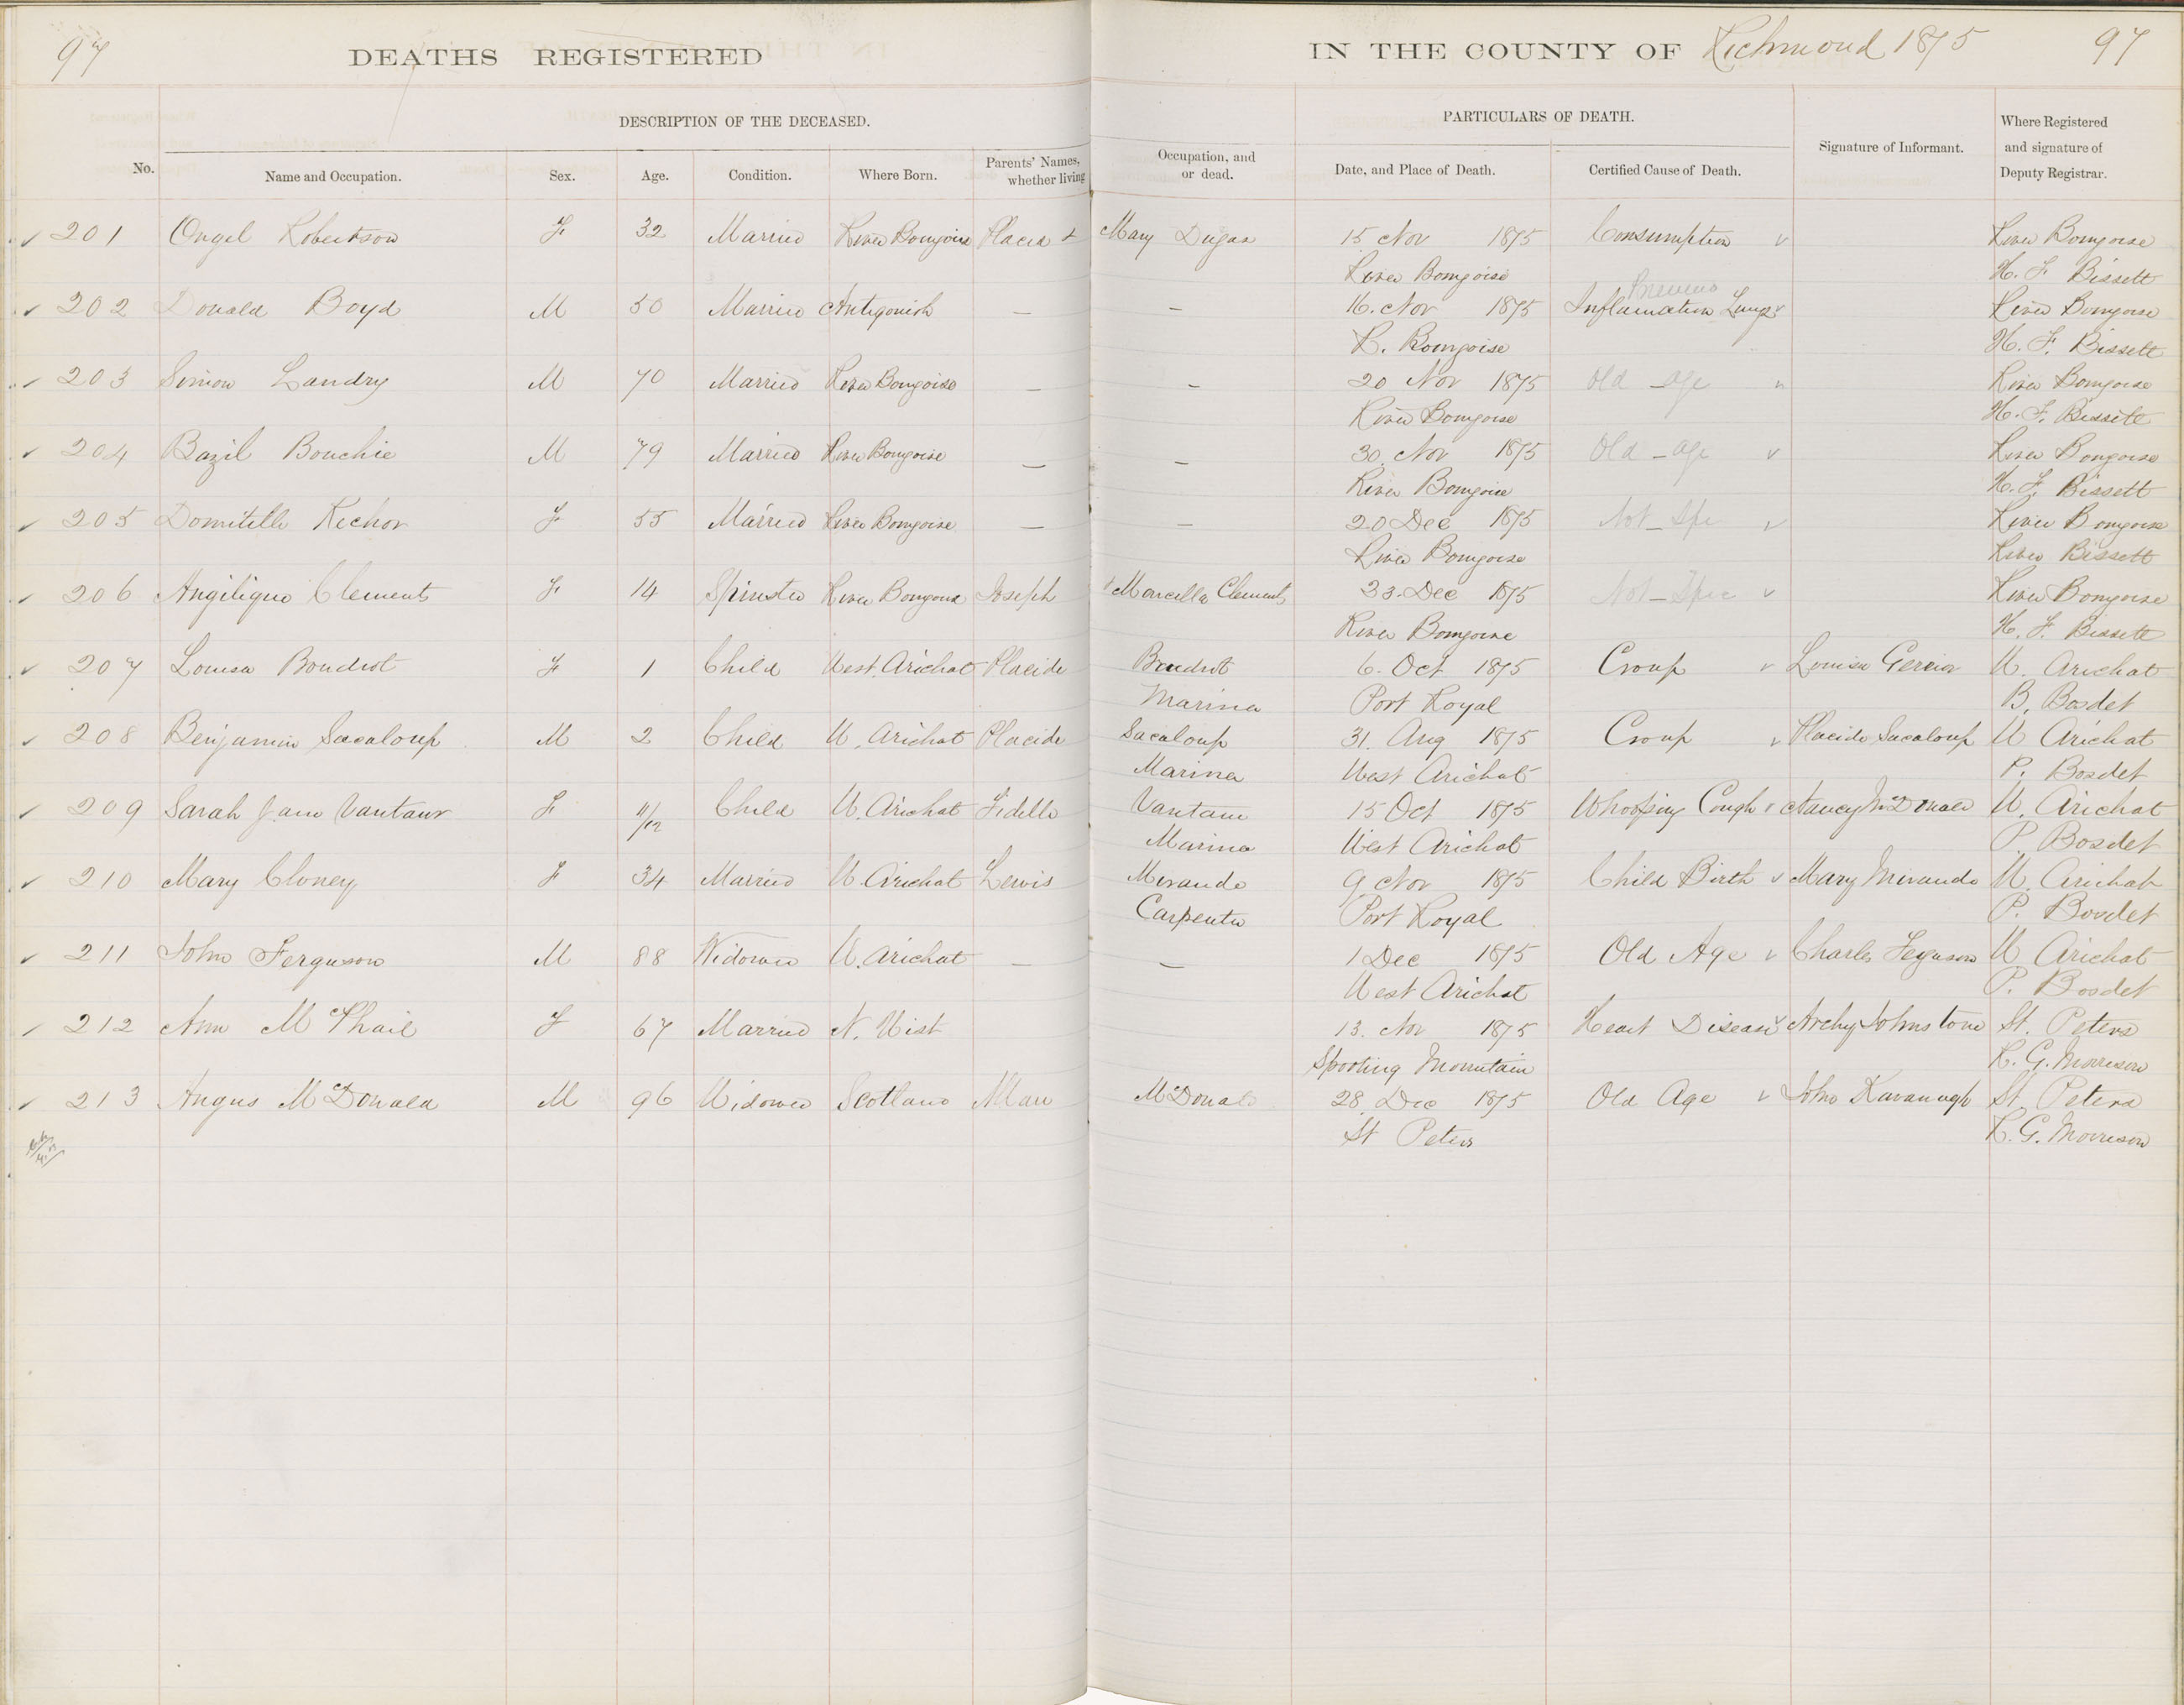 97 DEATHS REGISTERED IN THE COUNTY OF Richmond 1875 97
DESCRIPTION OF THE DECEASED. PARTICULARS OF DEATH.
No. Name and Occupation. Sex. Age. Condition. Where Born. Parents' Names, whether living Occupation, and or dead. Date, and Place of Death. Certified Cause of Death. Signature of Informant. Where Registered and signature of Deputy Registrar.
201 Ongel Robertson F 32 Married River Bourgoise Placid & Mary Dugas 15 Nov 1875 Consumption River Bourgoise
River Bourgoise H. F. Bissett
202 Donald Boyd M 50 Married Antigonish — — 16. Nov 1875 Inflamation Lungs River Bourgoise
R. Bourgoise H. F. Bissett
203 Simon Landry M 70 Married River Bourgoise — — 20 Nov 1875 Old age River Bourgoise
River Bourgoise H. F. Bissett
204 Bazil Bouchie M 79 Married River Bourgoise — — 30 Nov 1875 Old age River Bourgoise
River Bourgoise H. F. Bissett
205 Domitille Richor F 55 Married River Bourgoise — — 20 Dec 1875 Not Spe River Bourgoise
River Bourgoise River Bissett
206 Angilique Clements F 14 Spinster River Bourgoise Joseph & Marcella Clements 23 Dec 1875 Not Spec River Bourgoise
River Bourgoise H. F. Bissett
207 Louisa Boudrot F 1 Child West Arichat Placide Boudrot 6. Oct 1875 Croup Louisa Gerrior W. Arichat
Marina Port Royal B. Bosdet
208 Benjamin Sacaloup M 2 Child W. Arichat Placide Sacaloup 31. Aug 1875 Croup Placide Sacaloup W Arichat
Marina West Arichat P. Bosdet
209 Sarah Jane Vantaur F 11/12 Child W. Arichat Fidelle Vantaur 15 Oct 1875 Whooping Cough Nancy McDonald W. Arichat
Marina West Arichat P. Bosdet
210 Mary Cloney F 34 Married W. Arichat Lewis Mirande 9 Nov 1875 Child Birth Mary Mirande W. Arichat
Carpenter Port Royal P. Bosdet
211 John Ferguson M 88 Widower W. Arichat — — 1 Dec 1875 Old Age Charles Feguson W Arichat
West Arichat P. Bosdet
212 Ann McPhail F 67 Married N. Uist 13. Nov 1875 Heart Disease Archy Johnstone St. Peters
Sporting Mountain R. G. Morrison
213 Angus McDonald M 96 Widower Scotland Allan McDonald 28 Dec 1875 Old Age John Kavanagh St Peters
St Peters R. G. Morrison